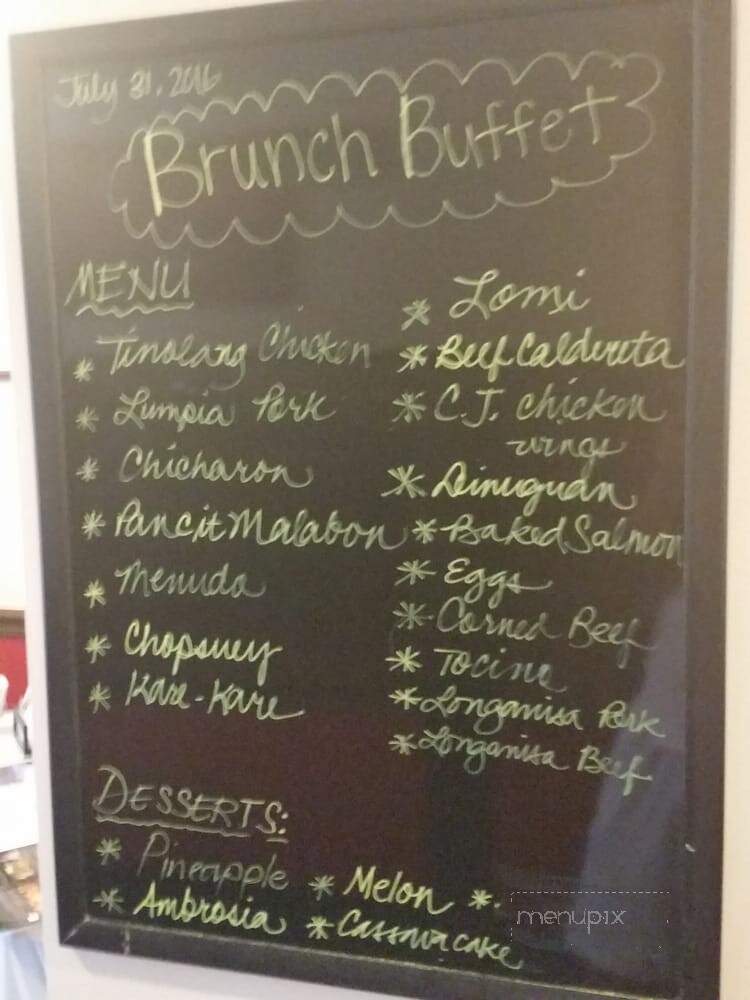 July 31, 2016
Brunch Buffet
MENU
* Tinolang Chicken
* Lumpia Pork
* Chicharon
* Pancit Malabon
* Menuda
* Chopsuey
* Kare-Kare
* Lomi
* Beef Caldereta
* C.J. chicken
wings
* Dinuguan
* Baked Salmon
* Eggs
* Corned Beef
* Tocino
* Longanisa Pork
* Longanisa Beef
DESSERTS:
* Pineapple
* Melon *.
* Ambrosia
* Cassava cake
menupix